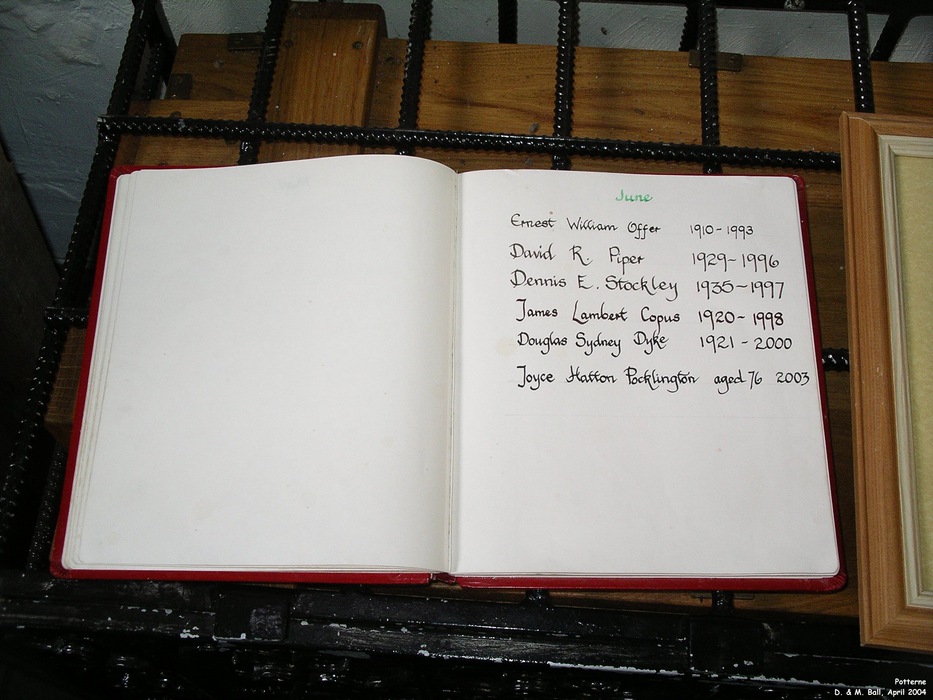 June
Ernest William Offer 1910-1993
David R. Piper 1929-1996
Dennis E. Stockley 1935-1997
James Lambert Copus 1920-1998
Douglas Sydney Dyke 1921-2000
Joyce Hatton Pocklington aged 76 2003
Potterne
D. & M. Ball, April 2004